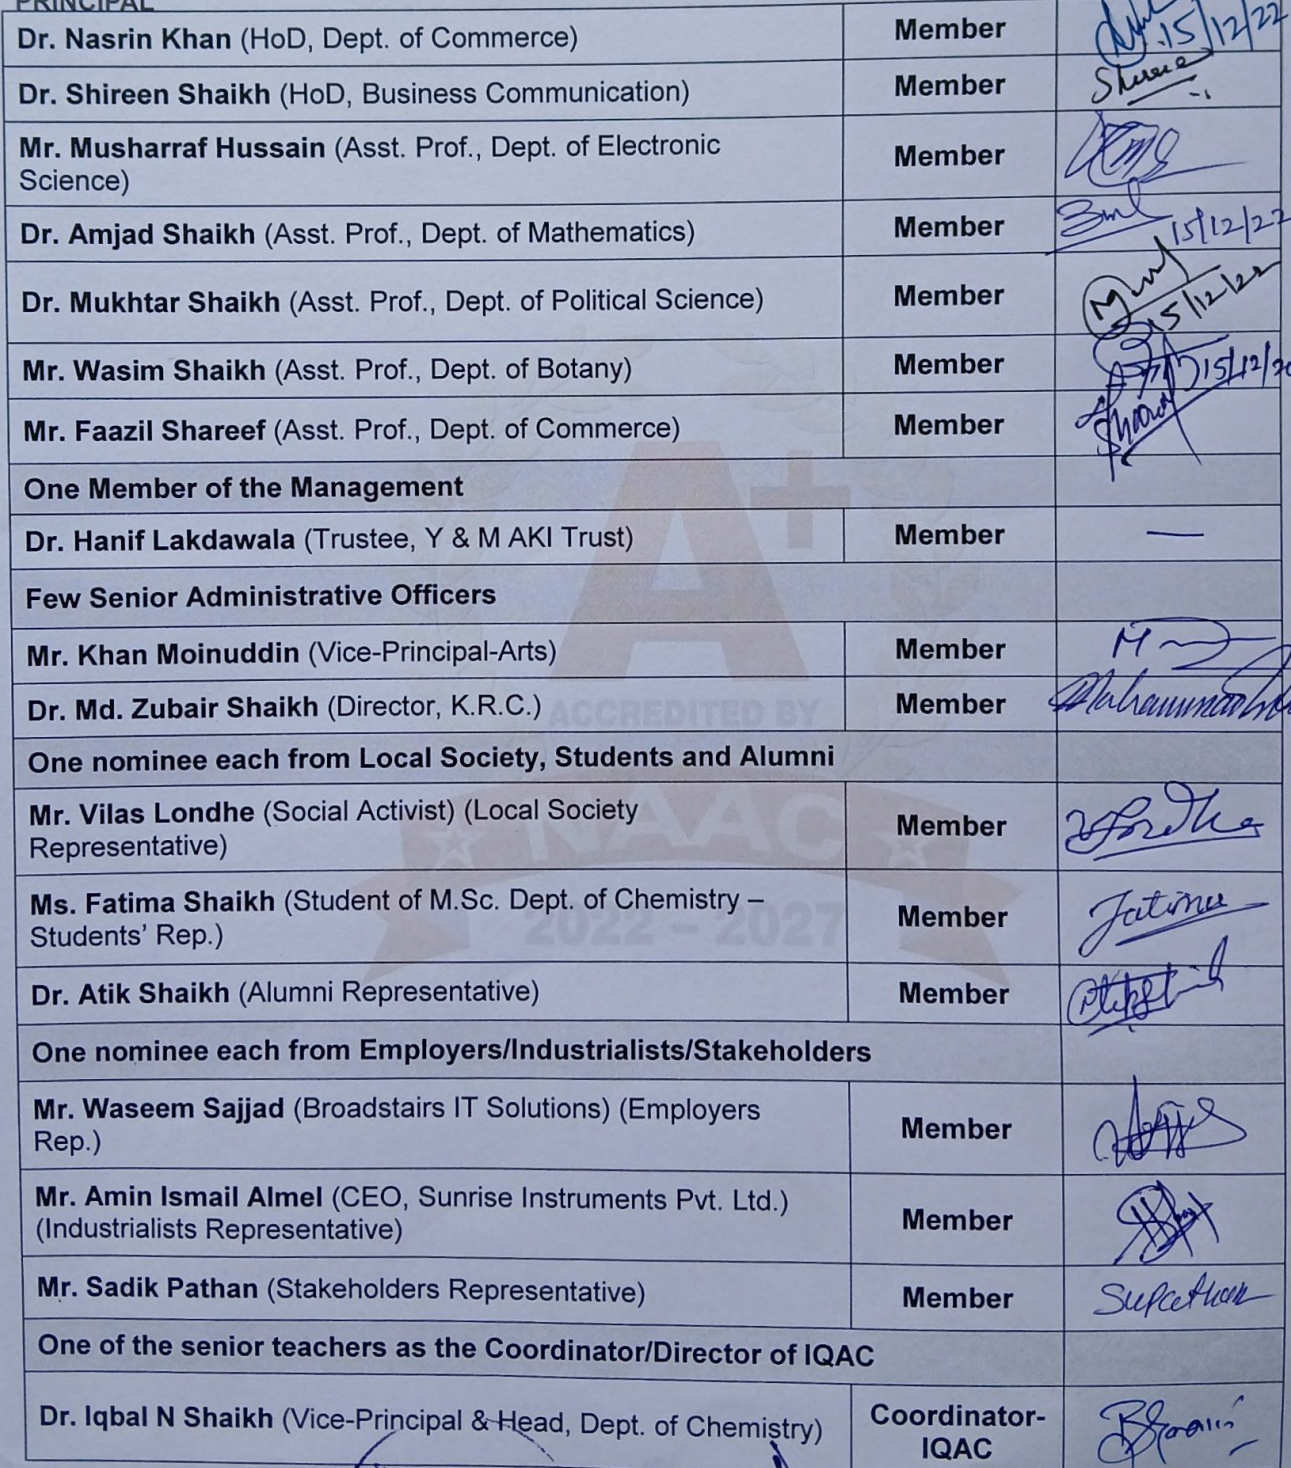 PRINCIPAL
Dr. Nasrin Khan (HoD, Dept. of Commerce) Member 15/12/22
Dr. Shireen Shaikh (HoD, Business Communication) Member
Mr. Musharraf Hussain (Asst. Prof., Dept. of Electronic
Science) Member
Dr. Amjad Shaikh (Asst. Prof., Dept. of Mathematics) Member 15/12/22
Dr. Mukhtar Shaikh (Asst. Prof., Dept. of Political Science) Member 15/12/22
Mr. Wasim Shaikh (Asst. Prof., Dept. of Botany) Member 15/12/20
Mr. Faazil Shareef (Asst. Prof., Dept. of Commerce) Member
One Member of the Management
Dr. Hanif Lakdawala (Trustee, Y & M AKI Trust) Member —
Few Senior Administrative Officers
Mr. Khan Moinuddin (Vice-Principal-Arts) Member
Dr. Md. Zubair Shaikh (Director, K.R.C.) Member
ACCREDITED BY
One nominee each from Local Society, Students and Alumni
Mr. Vilas Londhe (Social Activist) (Local Society
Representative) Member
NAAC
Ms. Fatima Shaikh (Student of M.Sc. Dept. of Chemistry –
Students' Rep.) Member Fatima
2022 – 2027
Dr. Atik Shaikh (Alumni Representative) Member
One nominee each from Employers/Industrialists/Stakeholders
Mr. Waseem Sajjad (Broadstairs IT Solutions) (Employers
Rep.) Member
Mr. Amin Ismail Almel (CEO, Sunrise Instruments Pvt. Ltd.)
(Industrialists Representative) Member
Mr. Sadik Pathan (Stakeholders Representative) Member
One of the senior teachers as the Coordinator/Director of IQAC
Dr. Iqbal N Shaikh (Vice-Principal & Head, Dept. of Chemistry) Coordinator-
IQAC
A+